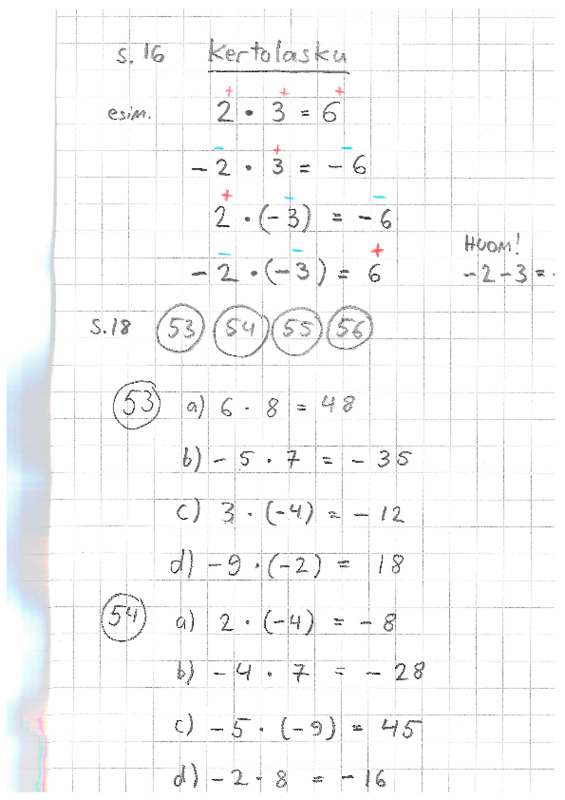 s. 16 Kertolasku
+ + +
esim. 2 · 3 = 6
- + -
-2 · 3 = -6
+ - -
2 · (-3) = -6
- - +
-2 · (-3) = 6
HUOM!
-2-3 =
S.18 53 54 55 56
53 a) 6 · 8 = 48
b) -5 · 7 = -35
c) 3 · (-4) = -12
d) -9 · (-2) = 18
54 a) 2 · (-4) = -8
b) -4 · 7 = -28
c) -5 · (-9) = 45
d) -2 · 8 = -16